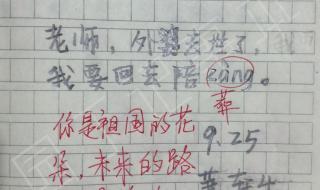 老师，外婆去世了，我
我要回去陪zàng。
葬
你是祖国的花 9.25
朵，未来的路